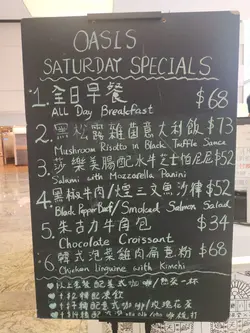 OASIS
SATURDAY SPECIALS
1. 全日早餐 $68
ALL Day Breakfast
2. 黑松露雜菌意大利飯 $73
Mushroom Risotto in Black Truffle Sauce
3. 莎樂美腸配水牛芝士帕尼尼 $52
Salami with Mozzarella Panini
4. 黑椒牛肉/煙三文魚沙律 $52
Black Pepper Beef/Smoked Salmon Salad
5. 朱古力牛角包 $34
Chocolate Croissant
6. 韓式泡菜雞肉扁意粉 $68
Chicken linguine with Kimchi
以上套餐配美式咖啡/熱茶一杯